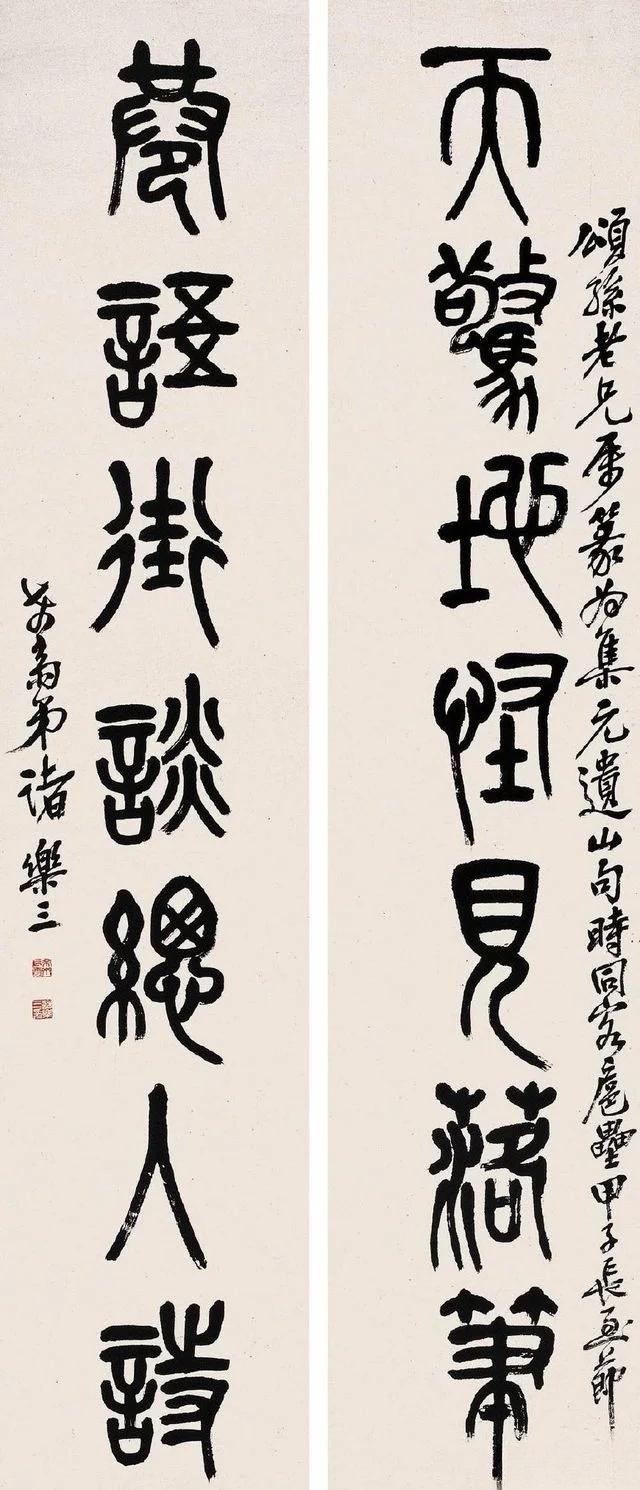 頌孫老兄屬篆為集元遺山句時同客扈壘甲子長至節
天驚地怪見落筆
巷語街談總入詩
弟諸樂三